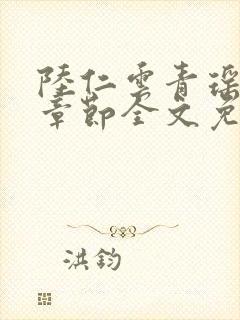 陸仁雲青瑶
章節全文免
洪鈞